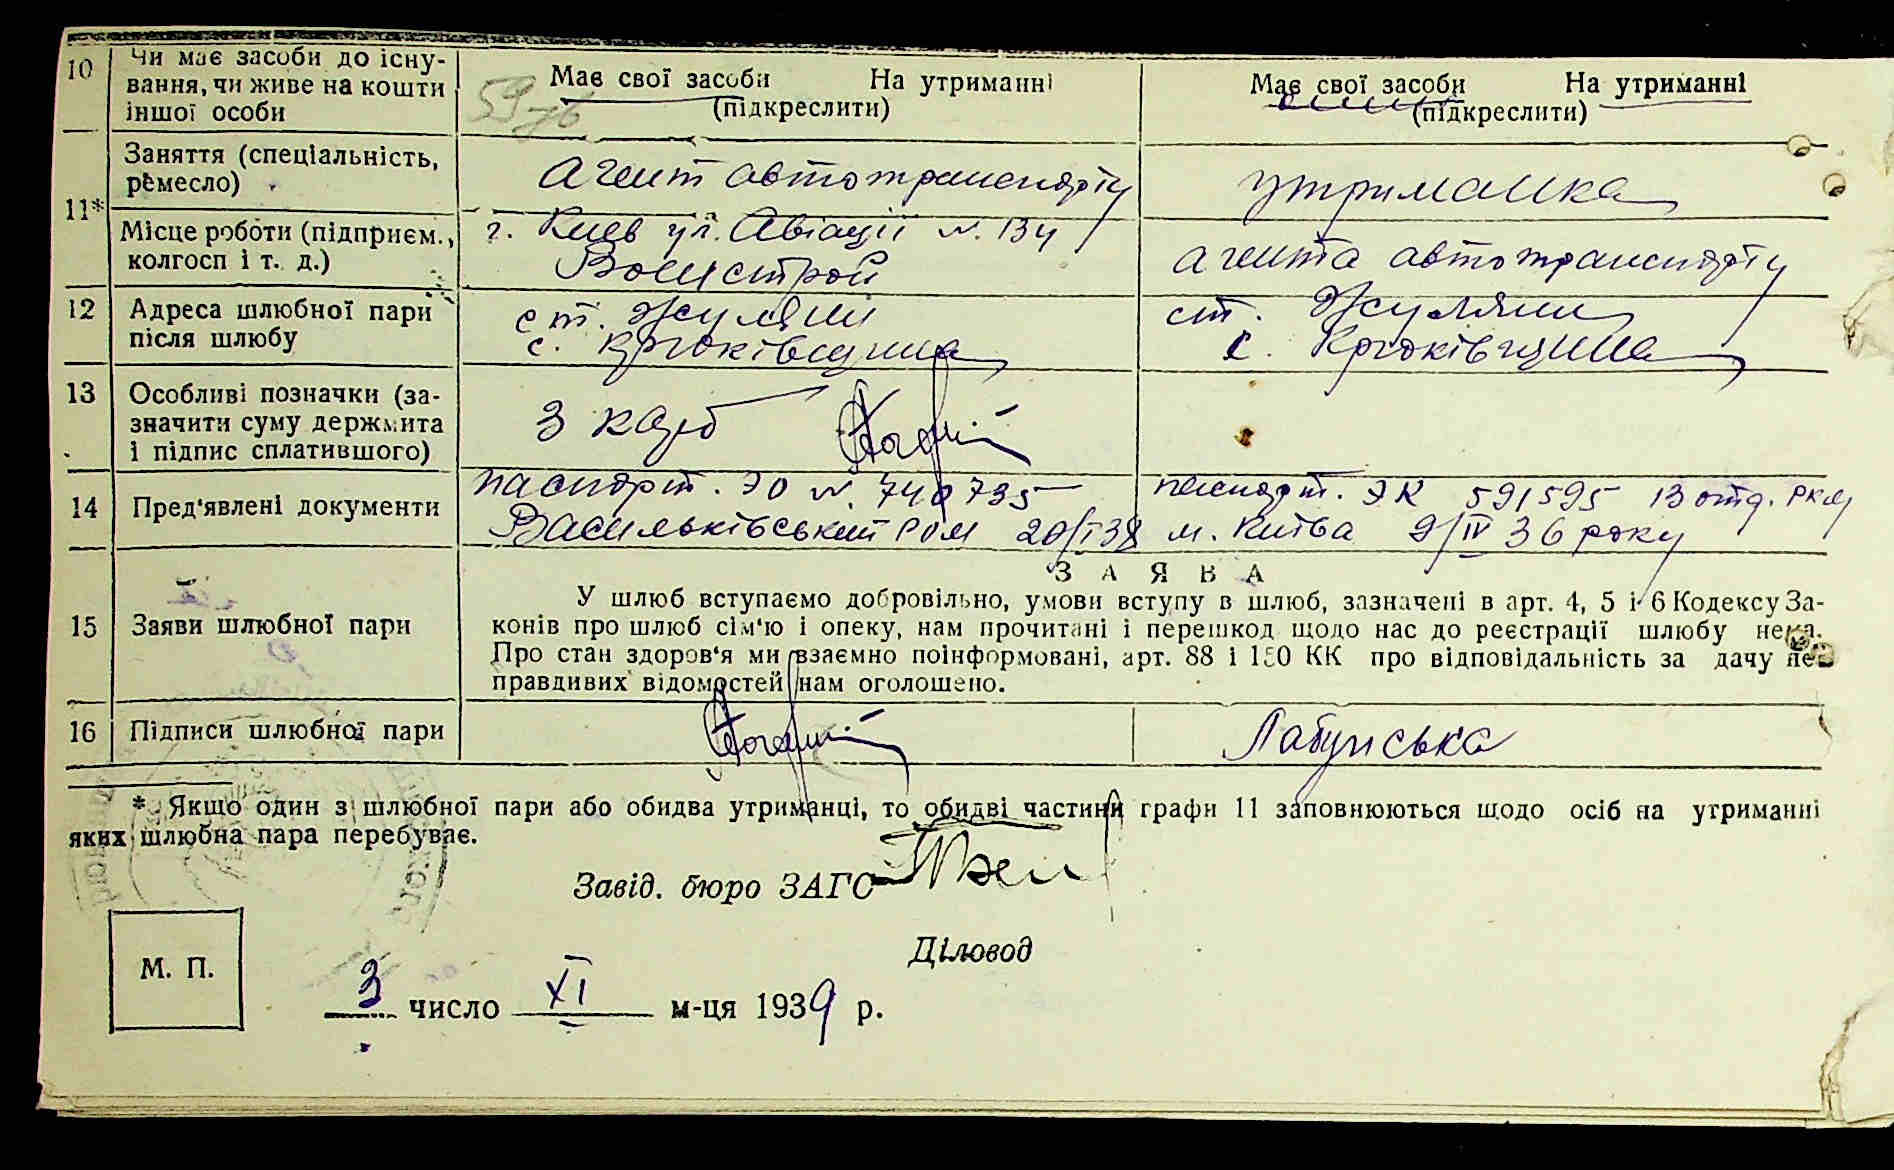 10 Чи має засоби до існу-
вання, чи живе на кошти
іншої особи
Має свої засоби На утриманні
(підкреслити)
Має свої засоби На утриманні
(підкреслити)
11* Заняття (спеціальність,
ремесло)
агент автотранспорту
утриманка
Місце роботи (підприєм.,
колгосп і т. д.)
г. Киев ул. Авіації №. 134
Военстрой
агента автотранспорту
12 Адреса шлюбної пари
після шлюбу
ст. Жуляни
с. Крюківщина
ст. Жуляни
с. Крюківщина
13 Особливі позначки (за-
значити суму держмита
і підпис сплатившого)
3 карб
14 Пред'явлені документи
паспорт. ЭО №. 740735
Васильківський РОМ 20/І 38
паспорт. ЭК 591595 13 отд. РКМ
м. Київа 9/IV 36 року
15 Заяви шлюбної пари
З А Я В А
У шлюб вступаємо добровільно, умови вступу в шлюб, зазначені в арт. 4, 5 і 6 Кодексу За-
конів про шлюб сім'ю і опеку, нам прочитані і перешкод щодо нас до реєстрації шлюбу нема.
Про стан здоров'я ми взаємно поінформовані, арт. 88 і 150 КК про відповідальність за дачу не-
правдивих відомостей нам оголошено.
16 Підписи шлюбної пари
Лабунська
* Якщо один з шлюбної пари або обидва утриманці, то обидві частини графи 11 заповнюються щодо осіб на утриманні
яких шлюбна пара перебуває.
Завід. бюро ЗАГС
Діловод
М. П.
3 число XI м-ця 1939 р.